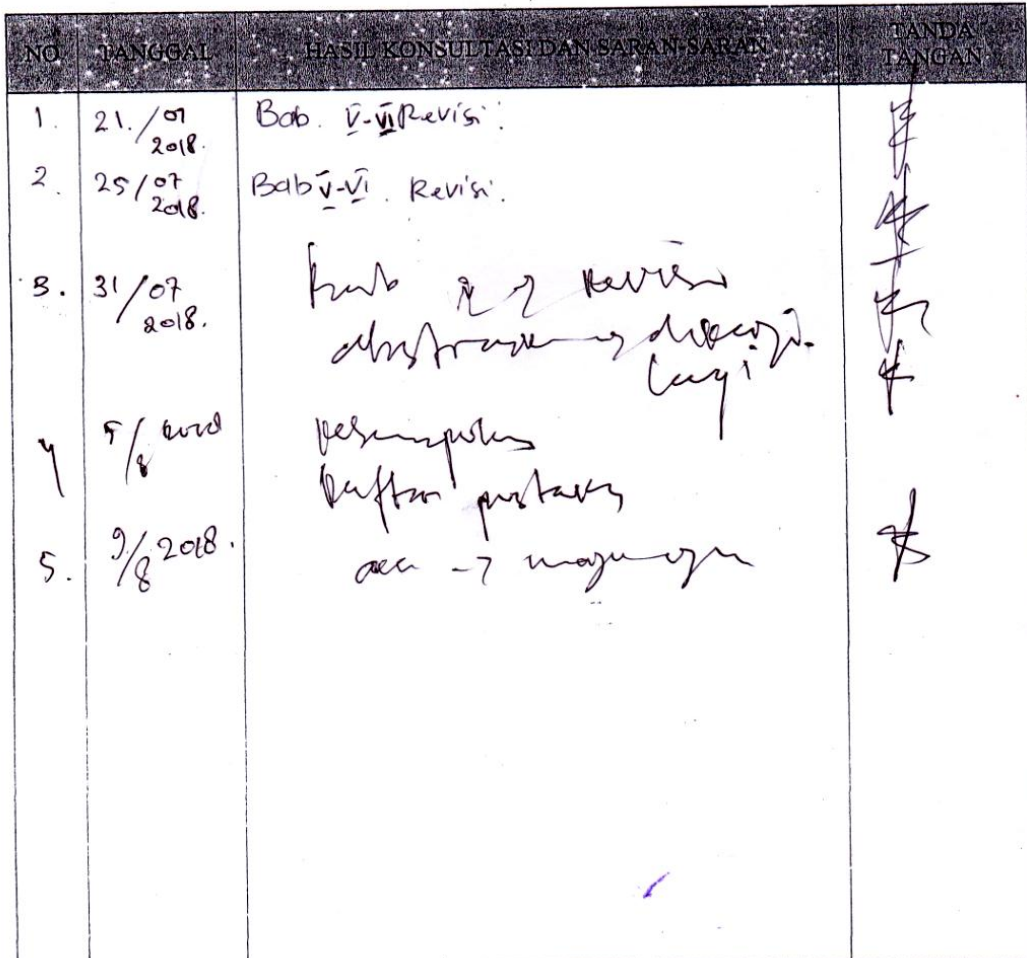 NO TANGGAL HASIL KONSULTASI DAN SARAN-SARAN TANDA TANGAN
1. 21./07 2018. Bab. V-VI Revisi.
2. 25/07 2018. Bab V-VI. Revisi.
3. 31/07 2018. revisi
lagi
4 /8 kesimpulan
Daftar pustaka
5. 9/8 2018. acc ->